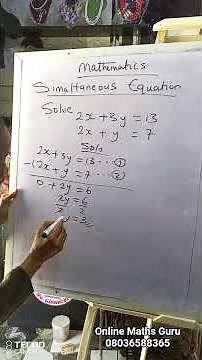 Mathematics
Simultaneous Equation
Solve
2x + 3y = 13
2x + y = 7
Soln
2x + 3y = 13 ... ①
-(2x + y = 7 ... ②
0 + 2y = 6
2y = 6
2 2
y = 3
Online Maths Guru
08036588365